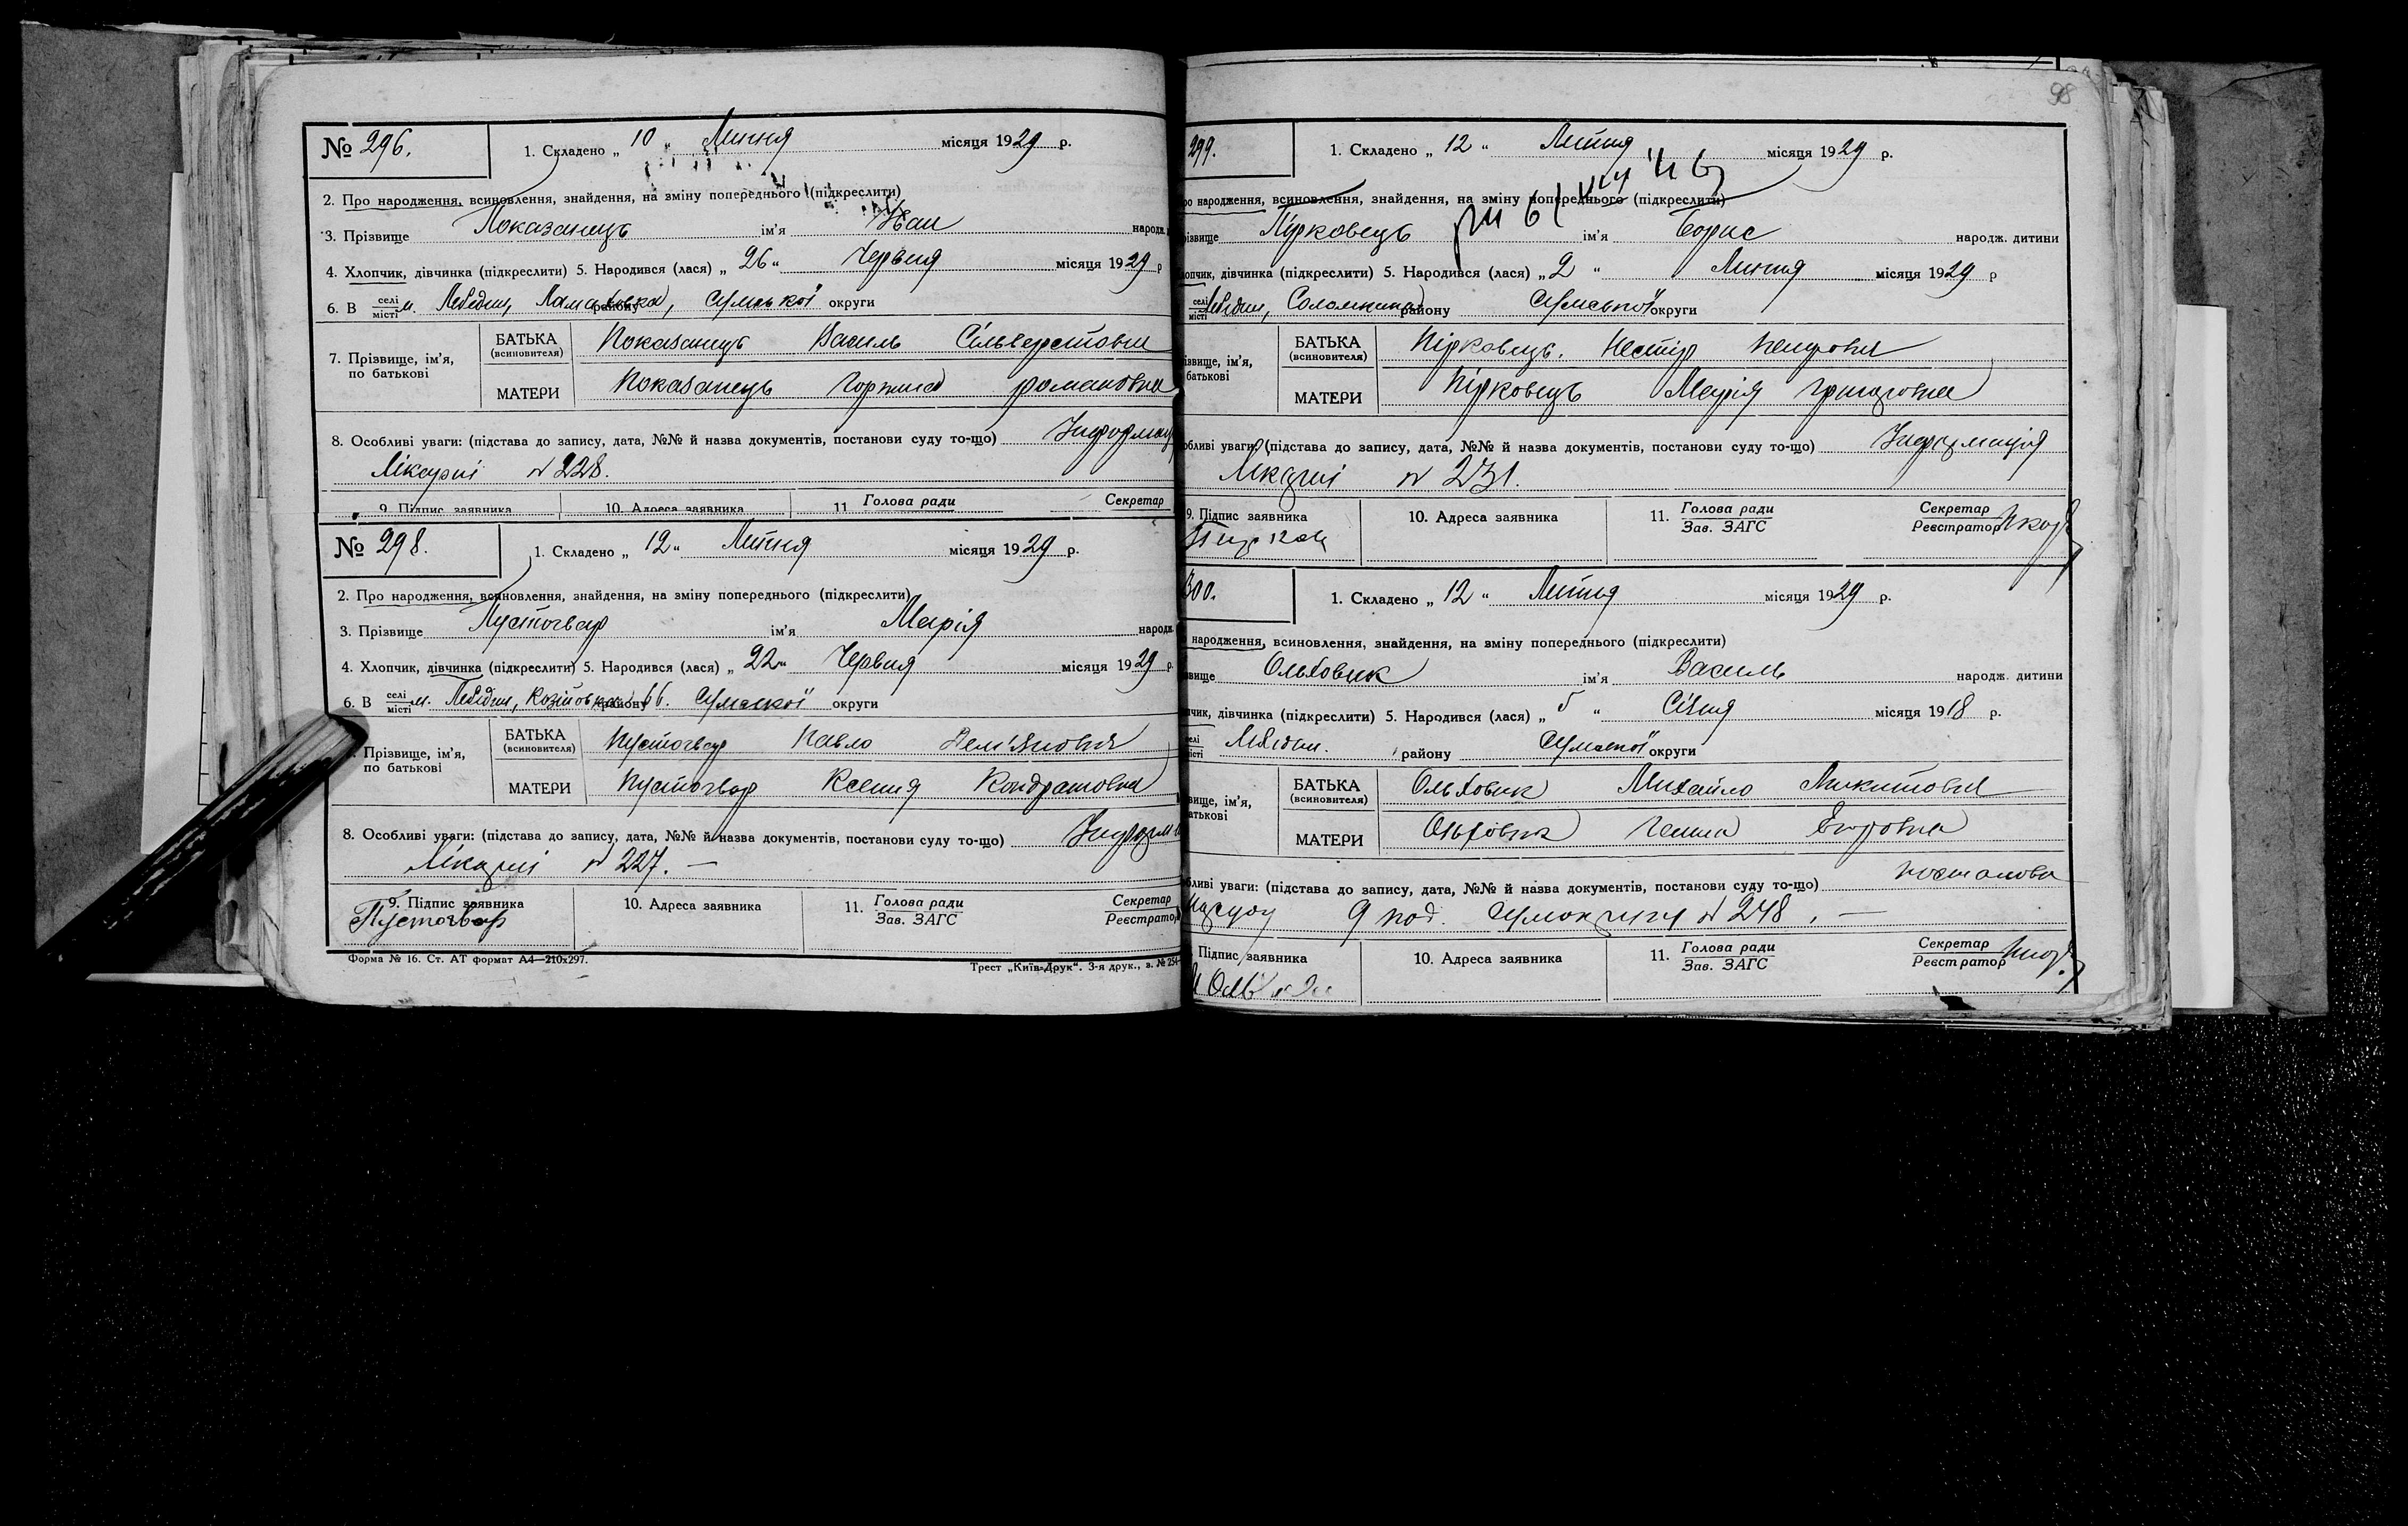 № 296.
1. Складено „ 10 “ Липня місяця 1929 р.
2. Про народження, всиновлення, знайдення, на зміну попереднього (підкреслити)
3. Прізвище Показанець ім'я Іван народж.
4. Хлопчик, дівчинка (підкреслити) 5. Народився (лася) „ 26 “ Червня місяця 1929 р
6. В селі місті м. Лебедин, району Сумської округи
7. Прізвище, ім'я, по батькові
БАТЬКА (всиновителя) Показанець Василь Сільверстович
МАТЕРИ Показанець Горпина романовна
8. Особливі уваги: (підстава до запису, дата, №№ й назва документів, постанови суду то-що) Информац
Лікарні № 228.
9. Підпис заявника 10. Адреса заявника 11 Голова ради Секретар
№ 298.
1. Складено „ 12 “ Липня місяця 1929 р.
2. Про народження, всиновлення, знайдення, на зміну попереднього (підкреслити)
3. Прізвище Пустовгар ім'я Марія народж.
4. Хлопчик, дівчинка (підкреслити) 5. Народився (лася) „ 22 “ Червня місяця 1929 р.
6. В селі місті м. Лебедин, району 66. Сумської округи
Прізвище, ім'я, по батькові
БАТЬКА (всиновителя) Павло Дем'янович
МАТЕРИ Ксения Кондратовна
8. Особливі уваги: (підстава до запису, дата, №№ й назва документів, постанови суду то-що)
Лікарні № 227. —
9. Підпис заявника 10. Адреса заявника 11. Голова ради Зав. ЗАГС Секретар Реєстратор
Форма № 16. Ст. АТ формат А4—210х297. Трест „Київ-Друк“. 3-я друк., з. № 254
98
299.
1. Складено „ 12 “ Липня місяця 1929 р.
ро народження, всиновлення, знайдення, на зміну попереднього (підкреслити)
різвище Пірковець ім'я Борис народж. дитини
лопчик, дівчинка (підкреслити) 5. Народився (лася) „ 2 “ Липня місяця 1929 р
селі місті Лебедин, району Сумської округи
ізвище, ім'я, батькові
БАТЬКА (всиновителя) Пірковець. Нестір Петрович
МАТЕРИ Пірковець Марія григоровна
обливі уваги: (підстава до запису, дата, №№ й назва документів, постанови суду то-що) Информація
Лікарні № 231.
9. Підпис заявника 10. Адреса заявника 11. Голова ради Зав. ЗАГС Секретар Реєстратор
300.
1. Складено „ 12 “ Липня місяця 1929 р.
народження, всиновлення, знайдення, на зміну попереднього (підкреслити)
звище Ольховик ім'я Василь народж. дитини
пчик, дівчинка (підкреслити) 5. Народився (лася) „ 5 “ Січня місяця 1918 р.
селі місті Лебедин. району Сумської округи
вище, ім'я, атькові
БАТЬКА (всиновителя) Ольховик Михайло Микитович
МАТЕРИ Ольховик Ганна
бливі уваги: (підстава до запису, дата, №№ й назва документів, постанови суду то-що) постанова
Нарсуду 9 № 248. —
Підпис заявника 10. Адреса заявника 11. Голова ради Зав. ЗАГС Секретар Реєстратор